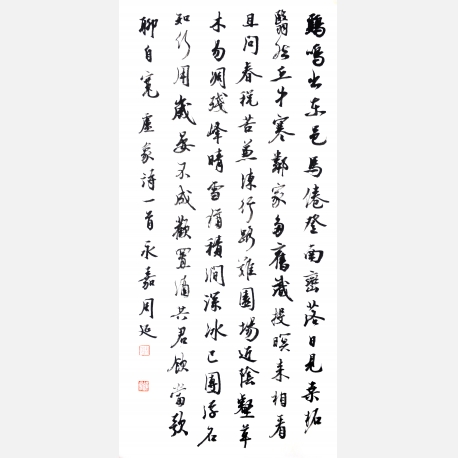 鷄鳴出東邑馬倦登南巒落日見桑柘
翳然丘中寒鄰家多舊識投暝來相看
且問春税苦兼陳行路難園場近陰壑草
木易凋殘峰晴雪猶積澗深冰已團浮名
知何用歲晏不成歡置酒共君飲當歌
聊自寬 盧象詩一首永嘉周延